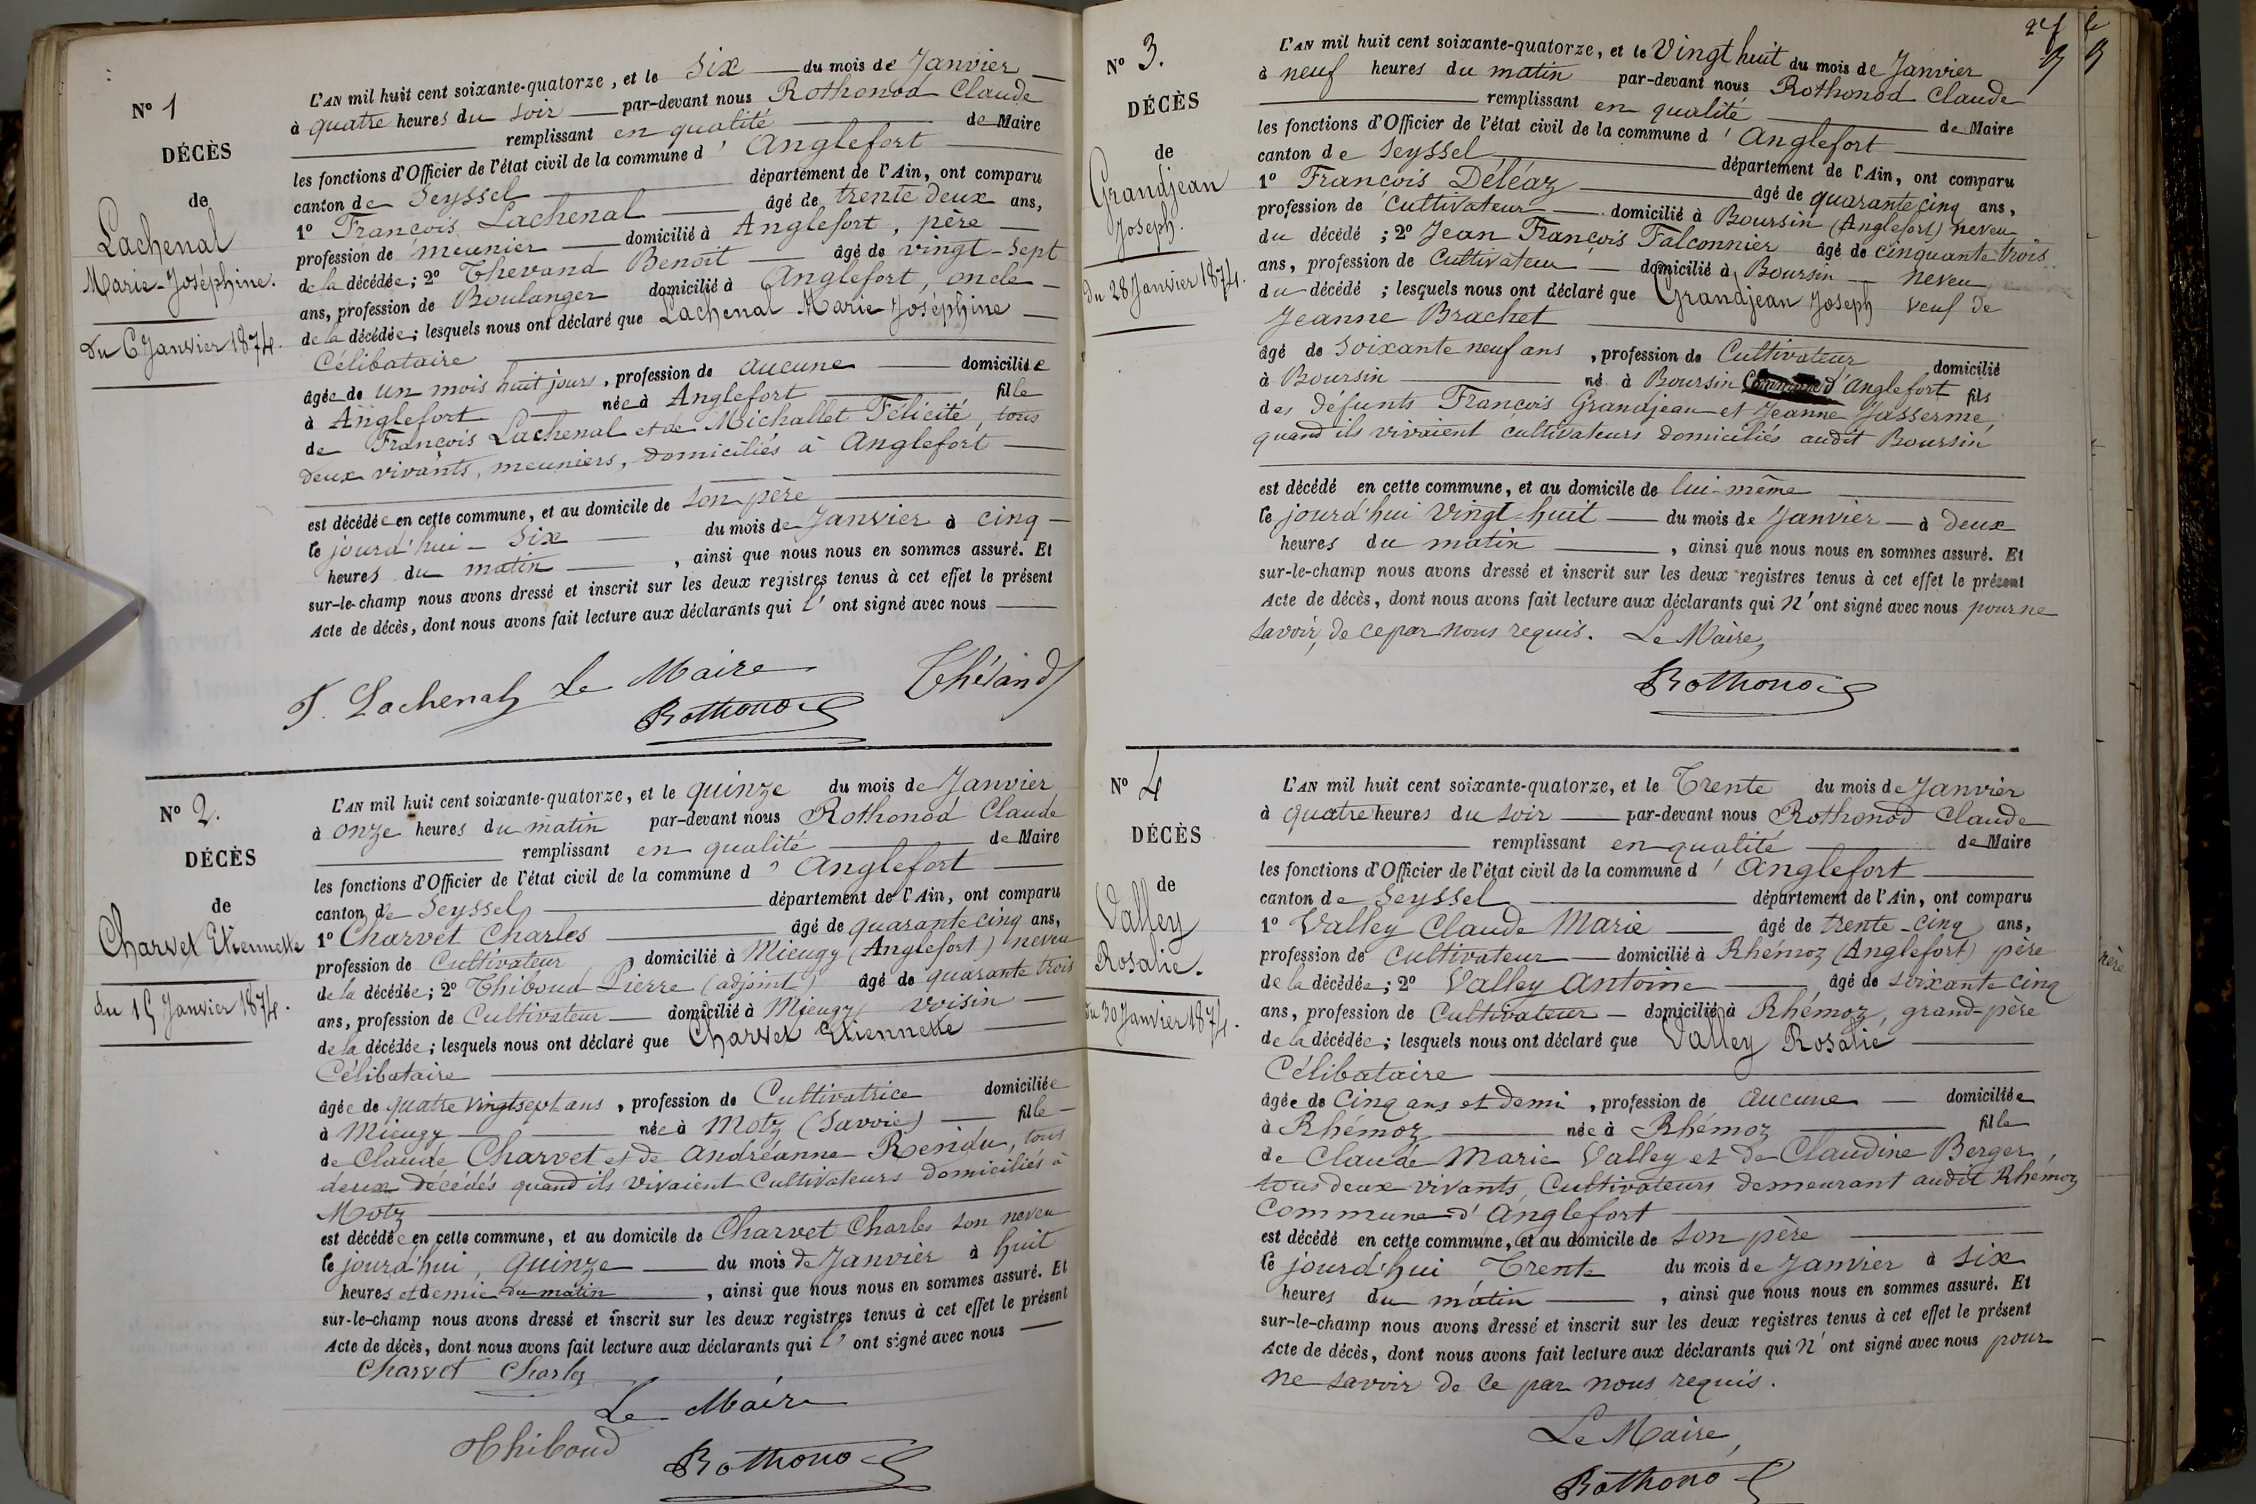 N° 1
DÉCÈS
de
Lachenal
Marie-Joséphine.
du 6 Janvier 1874.
L'AN mil huit cent soixante-quatorze, et le six du mois de Janvier
à quatre heures du soir par-devant nous Rothonod Claude
remplissant en qualité de Maire
les fonctions d'Officier de l'état civil de la commune d'Anglefort
canton de Seyssel département de l'Ain, ont comparu
1° François Lachenal âgé de trente deux ans,
profession de meunier domicilié à Anglefort, père
de la décédée; 2° Thevand Benoit âgé de vingt-sept
ans, profession de Boulanger domicilié à Anglefort, oncle
de la décédée; lesquels nous ont déclaré que Lachenal Marie Joséphine
Célibataire
âgée de un mois huit jours, profession de aucune domiciliée
à Anglefort née à Anglefort fille
de François Lachenal et de Michallet Félicité, tous
deux vivants, meuniers, domiciliés à Anglefort
est décédée en cette commune, et au domicile de son père
le jourd'hui six du mois de Janvier à cinq
heures du matin, ainsi que nous nous en sommes assuré. Et
sur-le-champ nous avons dressé et inscrit sur les deux registres tenus à cet effet le présent
Acte de décès, dont nous avons fait lecture aux déclarants qui l'ont signé avec nous
F. Lachenal Le Maire Thévand
Rothonod
N° 2.
DÉCÈS
de
Charvet Etiennette
du 15 Janvier 1874.
L'AN mil huit cent soixante-quatorze, et le quinze du mois de Janvier
à onze heures du matin par-devant nous Rothonod Claude
remplissant en qualité de Maire
les fonctions d'Officier de l'état civil de la commune d'Anglefort
canton de Seyssel département de l'Ain, ont comparu
1° Charvet Charles âgé de quarante cinq ans,
profession de Cultivateur domicilié à Mieugy (Anglefort) neveu
de la décédée; 2° Thiboud Pierre (adjoint) âgé de quarante trois
ans, profession de Cultivateur domicilié à Mieugy voisin
de la décédée; lesquels nous ont déclaré que Charvet Etiennette
Célibataire
âgée de quatre vingt sept ans, profession de Cultivatrice domiciliée
à Mieugy née à Motz (Savoie) fille
de Claude Charvet et de Andréanne Rendu, tous
deux décédés quand ils vivaient Cultivateurs domiciliés à
Motz
est décédée en cette commune, et au domicile de Charvet Charles son neveu
le jourd'hui, quinze du mois de Janvier à huit
heures et demie du matin, ainsi que nous nous en sommes assuré. Et
sur-le-champ nous avons dressé et inscrit sur les deux registres tenus à cet effet le présent
Acte de décès, dont nous avons fait lecture aux déclarants qui l'ont signé avec nous
Charvet Charles
Le Maire
Thiboud Rothonod
N° 3.
DÉCÈS
de
Grandjean
Joseph.
du 28 Janvier 1874.
L'AN mil huit cent soixante-quatorze, et le Vingt huit du mois de Janvier
à neuf heures du matin par-devant nous Rothonod Claude
remplissant en qualité de Maire
les fonctions d'Officier de l'état civil de la commune d'Anglefort
canton de Seyssel département de l'Ain, ont comparu
1° François Déléaz âgé de quarante cinq ans,
profession de Cultivateur domicilié à Boursin (Anglefort) neveu
du décédé; 2° Jean François Falconnier âgé de cinquante trois
ans, profession de Cultivateur domicilié à Boursin neveu
du décédé; lesquels nous ont déclaré que Grandjean Joseph veuf de
Jeanne Brachet
âgé de soixante neuf ans, profession de Cultivateur domicilié
à Boursin né à Boursin d'Anglefort fils
des défunts François Grandjean et Jeanne Jasserme,
quand ils vivaient cultivateurs domiciliés audit Boursin
est décédé en cette commune, et au domicile de lui-même
le jourd'hui vingt-huit du mois de Janvier à deux
heures du matin, ainsi que nous nous en sommes assuré. Et
sur-le-champ nous avons dressé et inscrit sur les deux registres tenus à cet effet le présent
Acte de décès, dont nous avons fait lecture aux déclarants qui n'ont signé avec nous pour ne
savoir, de ce par nous requis. Le Maire,
Rothonod
N° 4
DÉCÈS
de
Valley
Rosalie.
du 30 Janvier 1874.
L'AN mil huit cent soixante-quatorze, et le Trente du mois de Janvier
à quatre heures du soir par-devant nous Rothonod Claude
remplissant en qualité de Maire
les fonctions d'Officier de l'état civil de la commune d'Anglefort
canton de Seyssel département de l'Ain, ont comparu
1° Valley Claude Marie âgé de trente-cinq ans,
profession de Cultivateur domicilié à Rhémoz (Anglefort) père
de la décédée; 2° Valley Antoine âgé de soixante cinq
ans, profession de Cultivateur domicilié à Rhémoz, grand-père
de la décédée; lesquels nous ont déclaré que Valley Rosalie
Célibataire
âgée de Cinq ans et demi, profession de aucune domiciliée
à Rhémoz née à Rhémoz fille
de Claude Marie Valley et de Claudine Berger
tous deux vivants, Cultivateurs demeurant audit Rhémoz
Commune d'Anglefort
est décédé en cette commune, et au domicile de son père
le jourd'hui Trente du mois de Janvier à six
heures du matin, ainsi que nous nous en sommes assuré. Et
sur-le-champ nous avons dressé et inscrit sur les deux registres tenus à cet effet le présent
Acte de décès, dont nous avons fait lecture aux déclarants qui n'ont signé avec nous pour
ne savoir de ce par nous requis.
Le Maire,
Rothonod